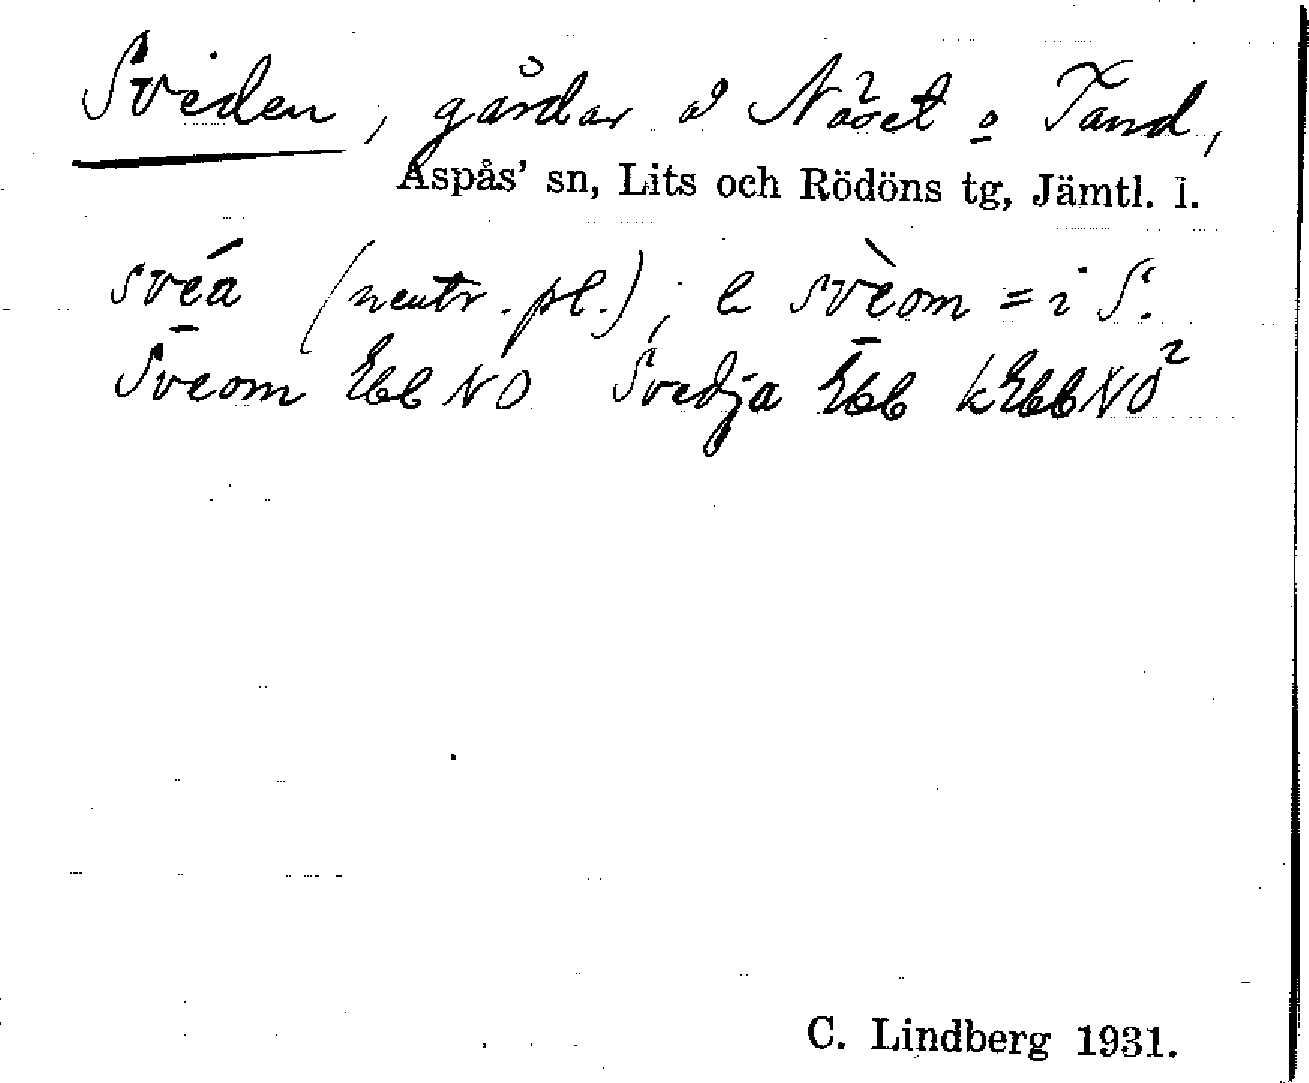 Sveden, gårdar å Näset o Tand,
Aspås' sn, Lits och Rödöns tg, Jämtl. l.
svéa (neutr. pl.); svèom = i S.
Sveom Ebb NO Svedja Ebb kEbbNO²
C. Lindberg 1931.